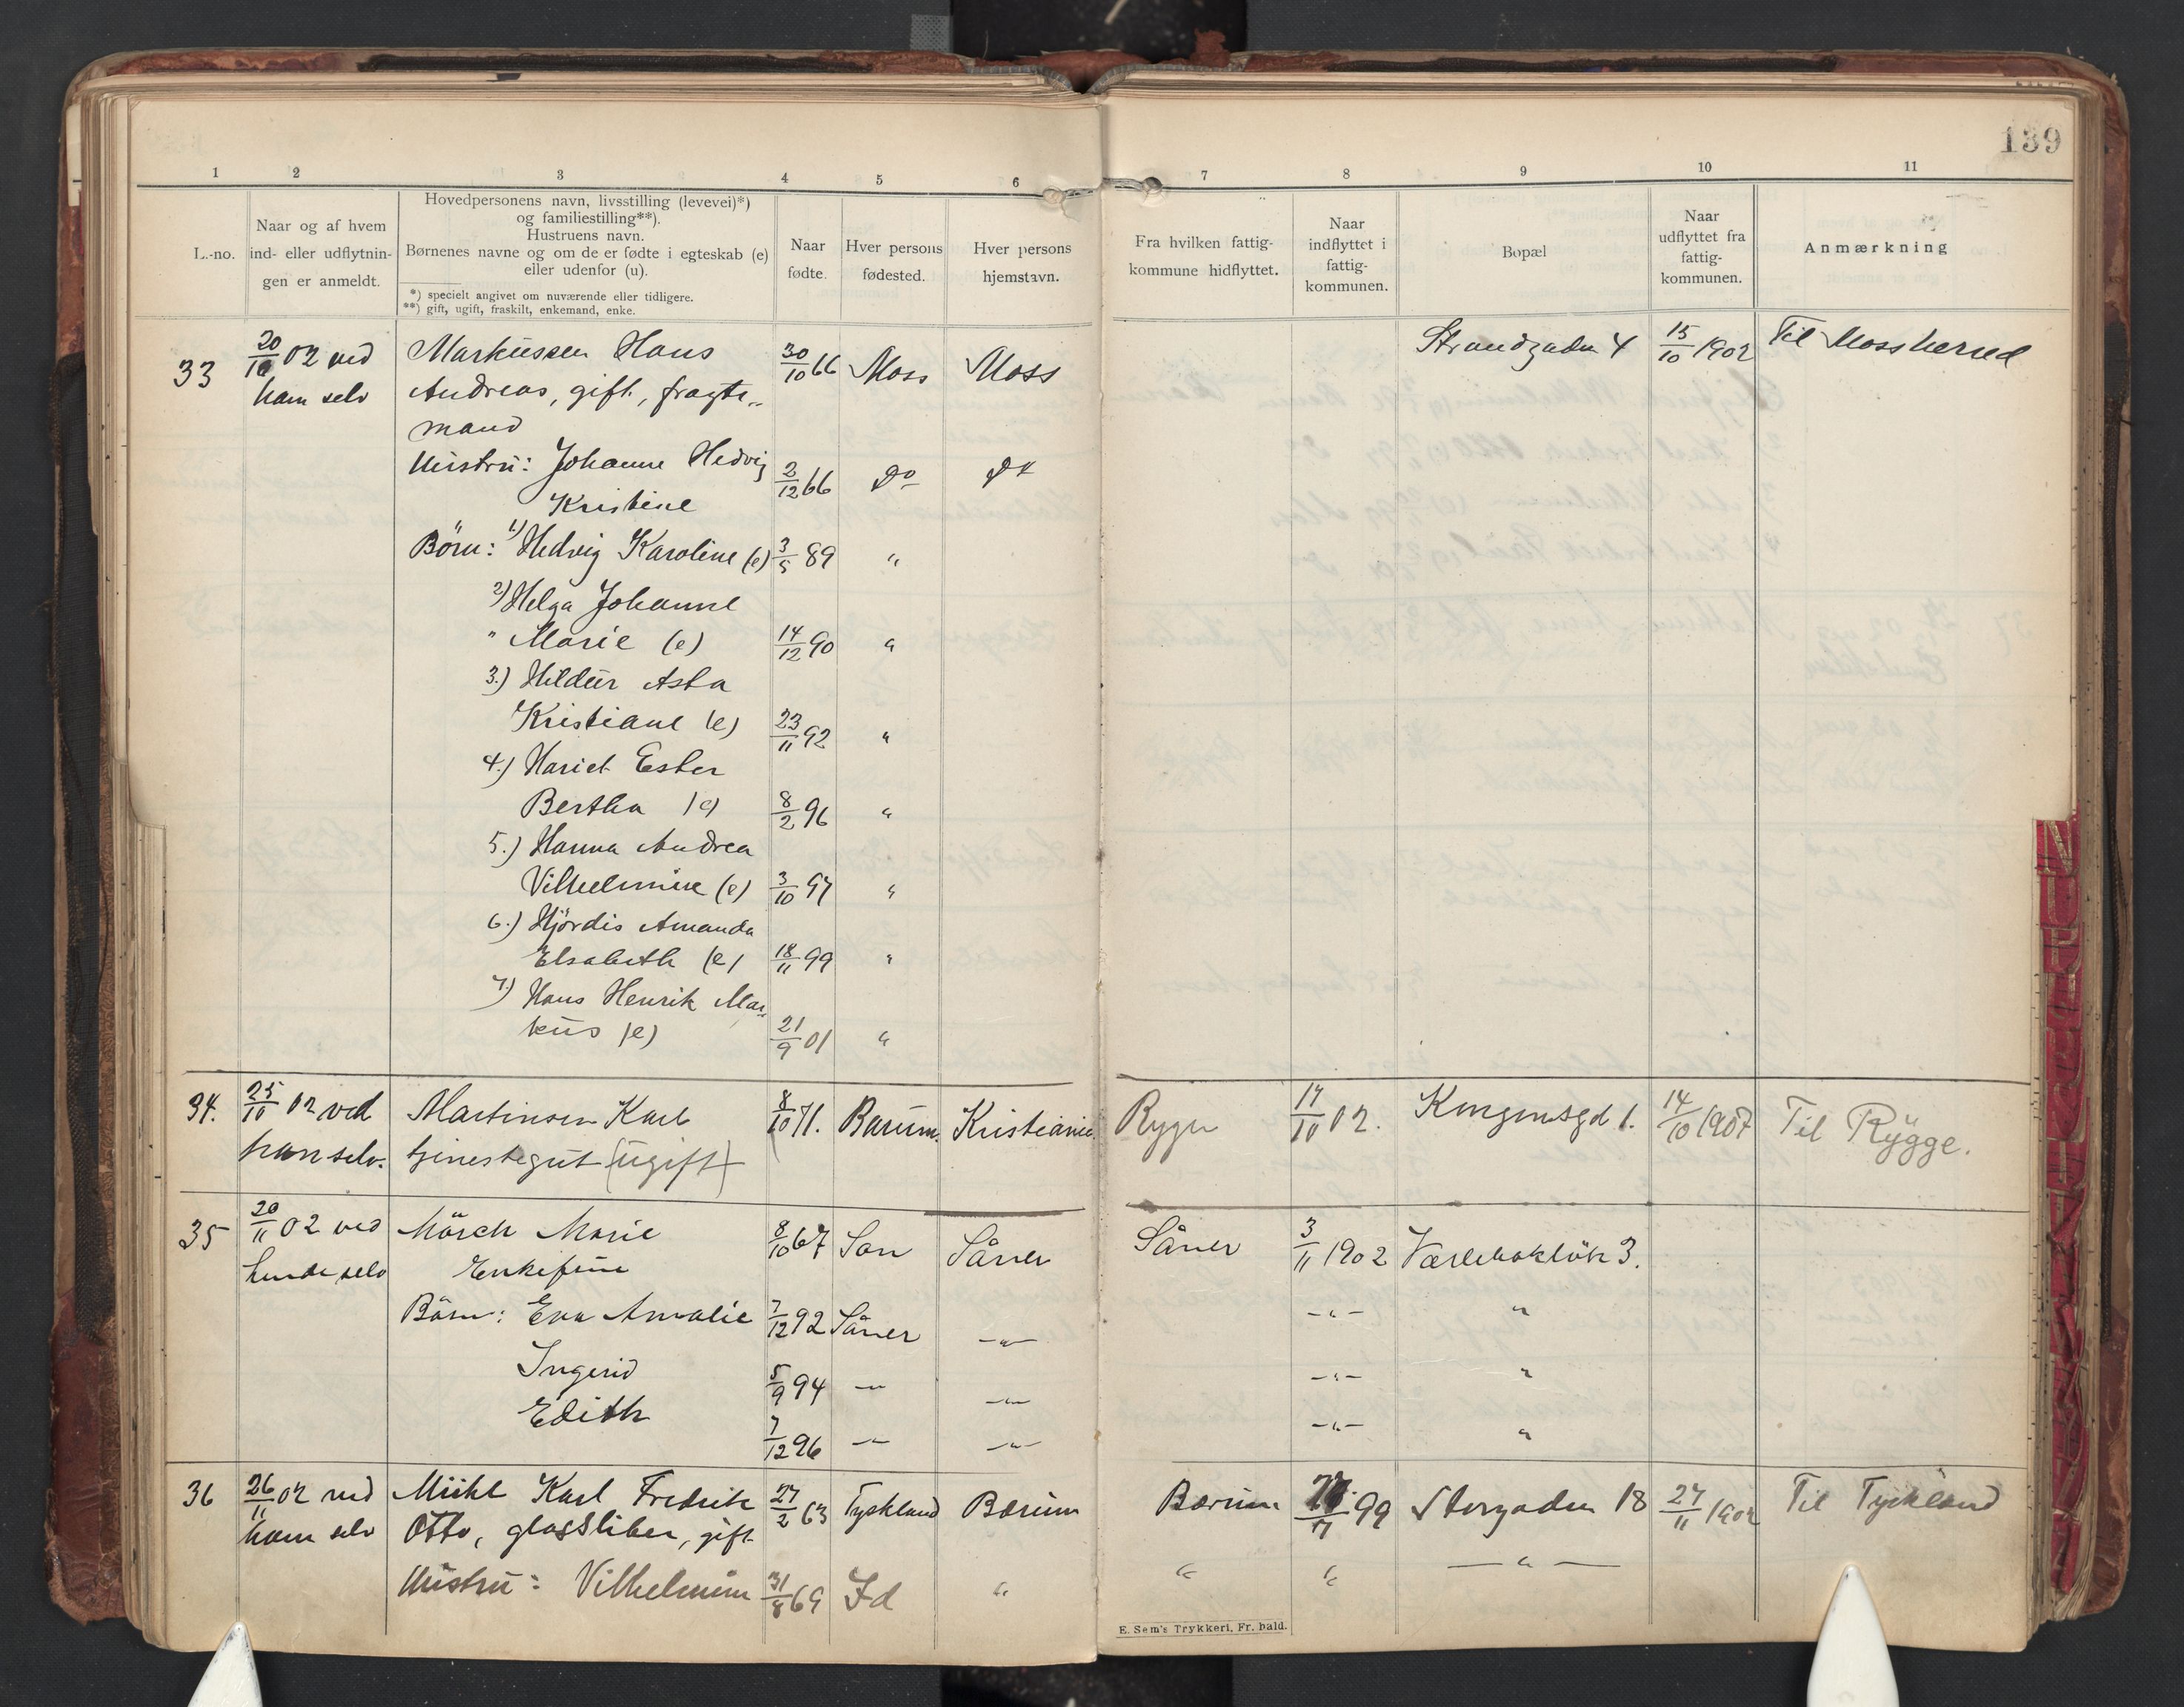 139
1 2 3 4 5 6 7 8 9 10 11
L.-no.
Naar og af hvem
ind- eller udflytnin-
gen er anmeldt.
Hovedpersonens navn, livsstilling (levevei)*)
og familiestilling**).
Hustruens navn.
Børnenes navne og om de er fødte i egteskab (e)
eller udenfor (u).
*) specielt angivet om nuværende eller tidligere.
**) gift, ugift, fraskilt, enkemand, enke.
Naar
fødte.
Hver persons
fødested.
Hver persons
hjemstavn.
Fra hvilken fattig-
kommune hidflyttet.
Naar
indflyttet i
fattig-
kommunen.
Bopæl
Naar
udflyttet fra
fattig-
kommunen.
Anmærkning
33 20/10 02 ved Markussen Hans 30/10 66 Moss Moss Strandgaden 4 15/10 1902 Til Moss herred
ham selv Andreas, gift, fragte-
mand
Hustru: Johanne Hedvig 2/12 66 Do Do
Kristine
Börn: 1) Hedvig Karoline (e) 3/5 89 "
2) Helga Johanne
" Marie (e) 14/12 90 "
3.) Hildur Asta
Kristiane (e) 23/11 92 "
4.) Hariet Ester
Bertha (e) 8/2 96 "
5.) Hanna Andrea
Vilhelmine (e) 3/10 97 "
6.) Hjördis Amanda
Elsabeth (e) 18/11 99 "
7.) Hans Henrik Mar-
kus (e) 21/9 01 "
34. 25/10 02 ved Martinsen Karl 8/10 71. Bærum. Kristiania Rygge 17/10 02. Kongensgd 1. 14/10 1907 Til Rygge.
ham selv. tjenestegut (ugift)
35 20/11 02 ved Mörch Marie 8/10 67 Son Såner Såner 3/11 1902 Værlebakken 3.
hende selv Enkefrue
Börn: Eva Amalie 7/12 92 Såner -"- -"- "
Ingerid 5/9 94 -"- -"- -"- "
Edith 7/12 96 -"- -"- -"- "
36 26/11 02 ved Karl Fredrik 27/2 63 Tyskland Bærum Bærum 99 Storgaden 18 27/11 1902 Til Tyskland
ham selv Otto, glassliber, gift
Hustru: Vilhelmine 31/8 69 Id " " " -"-
E. Sem's Trykkeri, Fr. hald.